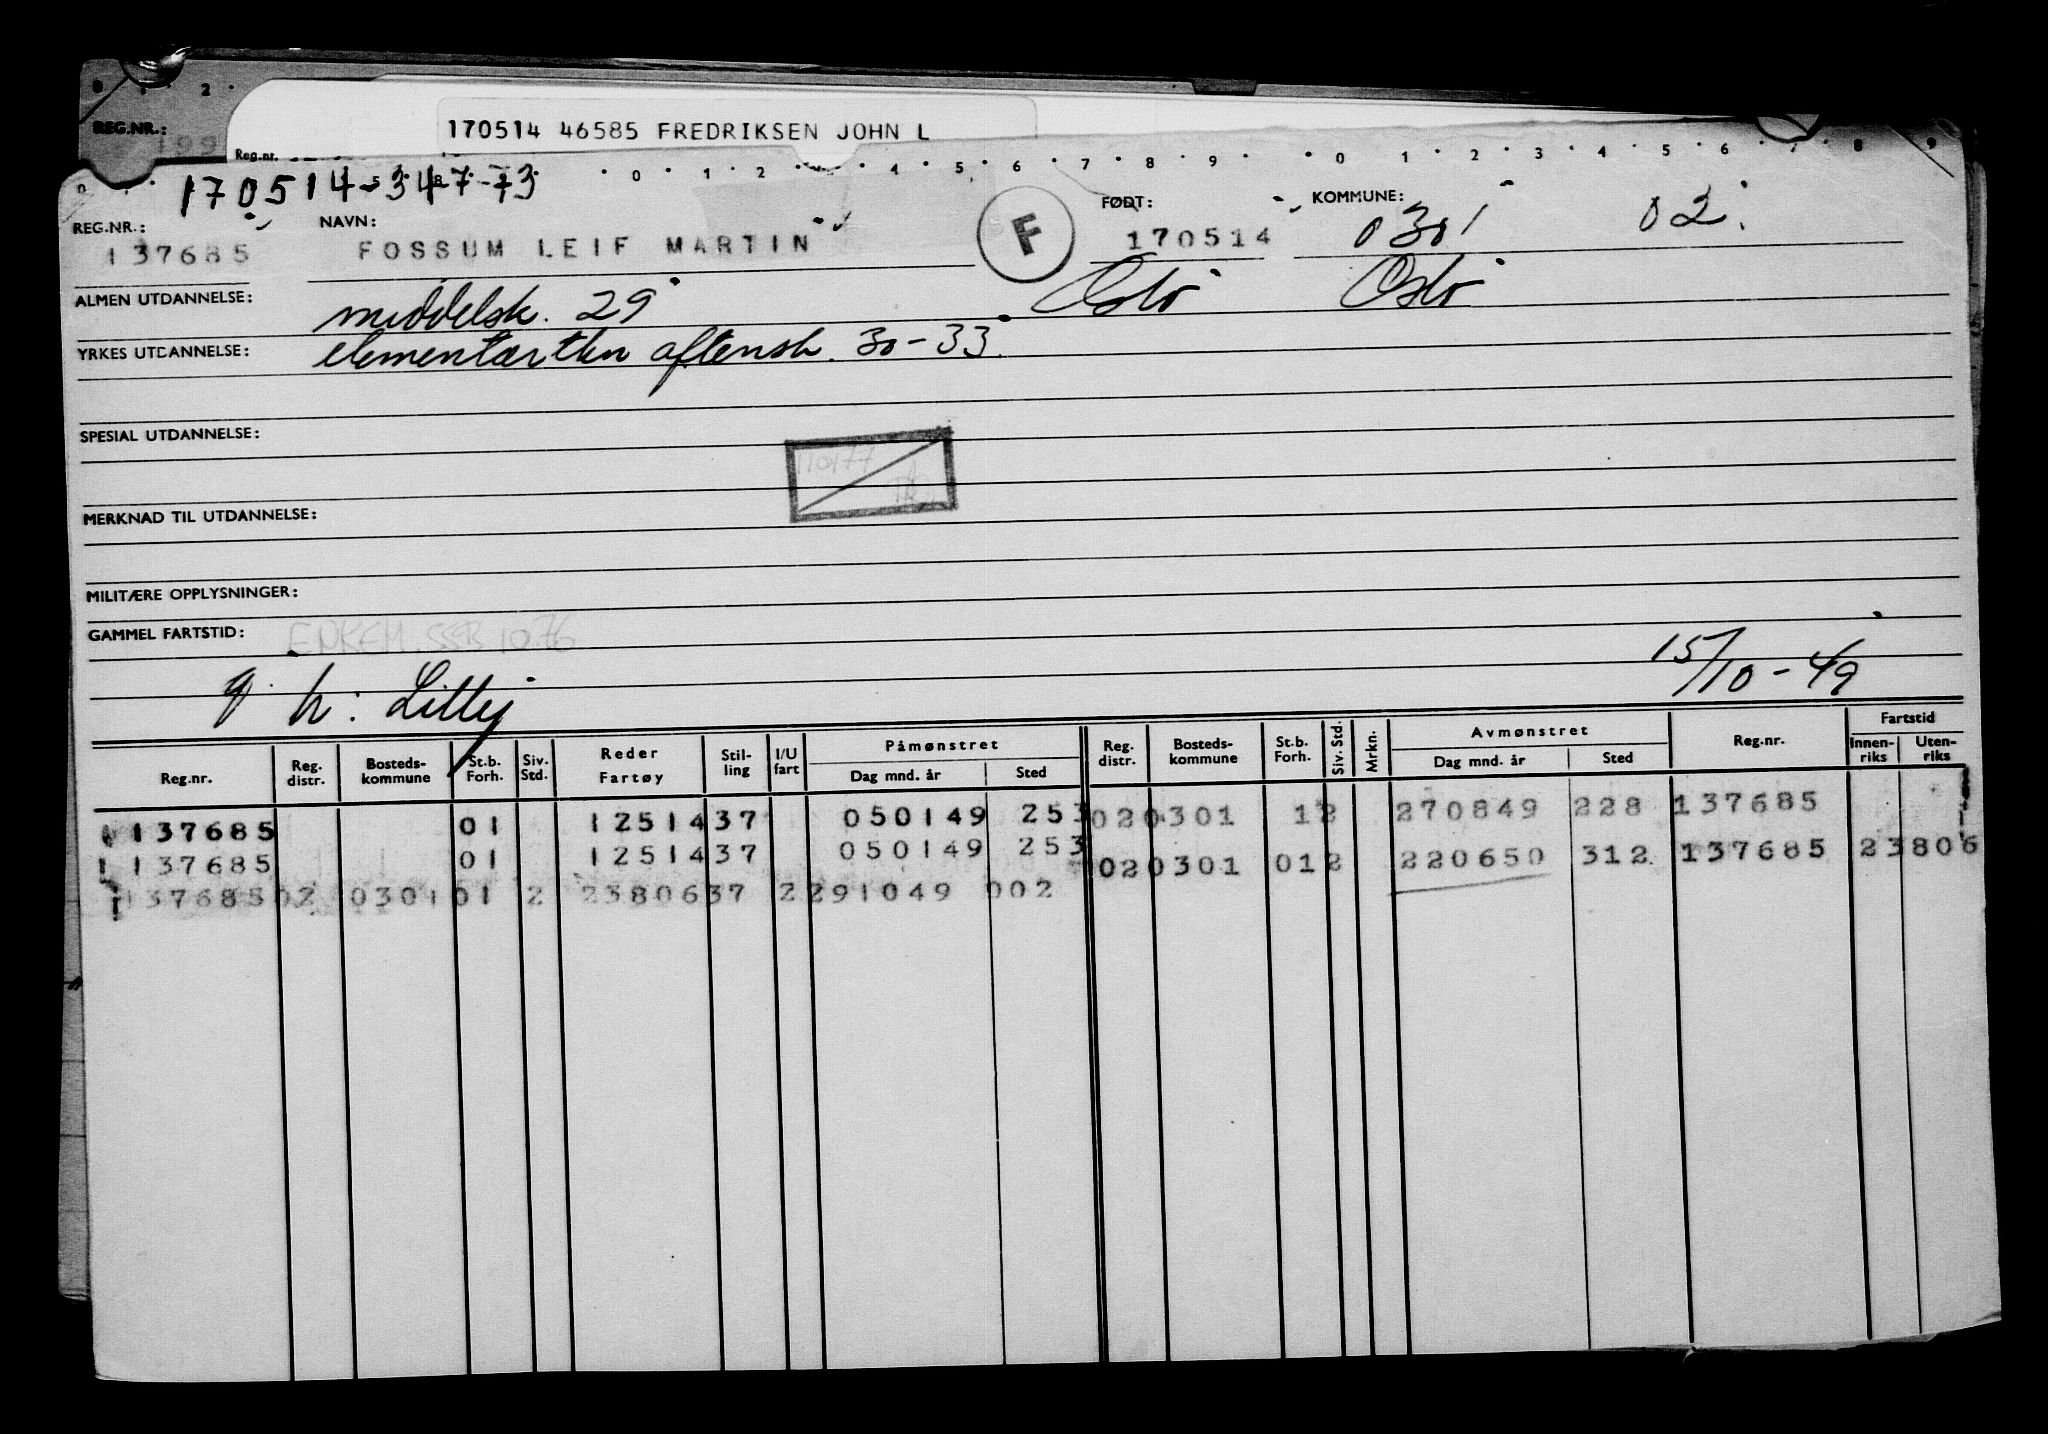 0 2
REG.NR.:
199
170514 46585 FREDRIKSEN JOHN L
Reg.nr.
0 1 2 4 5 6 7 8 9 0 1 2 3 4 5 6 8 9
170514-347-73
REG.NR.: NAVN: F FØDT: KOMMUNE:
137685 FOSSUM LEIF MARTIN 170514 0301 02.
ALMEN UTDANNELSE: middelsk. 29 Oslo Oslo
YRKES UTDANNELSE: elementærtkn aftensk. 30-33.
SPESIAL UTDANNELSE:
110177
MERKNAD TIL UTDANNELSE:
MILITÆRE OPPLYSNINGER:
GAMMEL FARTSTID: ENKEM. SSB 10.76
g. h: Lilly 15/10-49
Reg.nr. Reg. distr. Bosteds-kommune St.b. Forh. Siv. Std. Reder Fartøy Stil-ling I/U fart Påmønstret Dag mnd. år Sted Reg. distr. Bosteds-kommune St.b. Forh. Siv. Std. Mrkn. Avmønstret Dag mnd. år Sted Reg.nr. Fartstid Innen-riks Uten-riks
137685 01 12514 37 050149 253 02 0301 1 2 270849 228 137685
137685 01 12514 37 050149 253 02 0301 01 2 220650 312 137685 23806
137685 02 0301 01 2 23806 37 2 291049 002